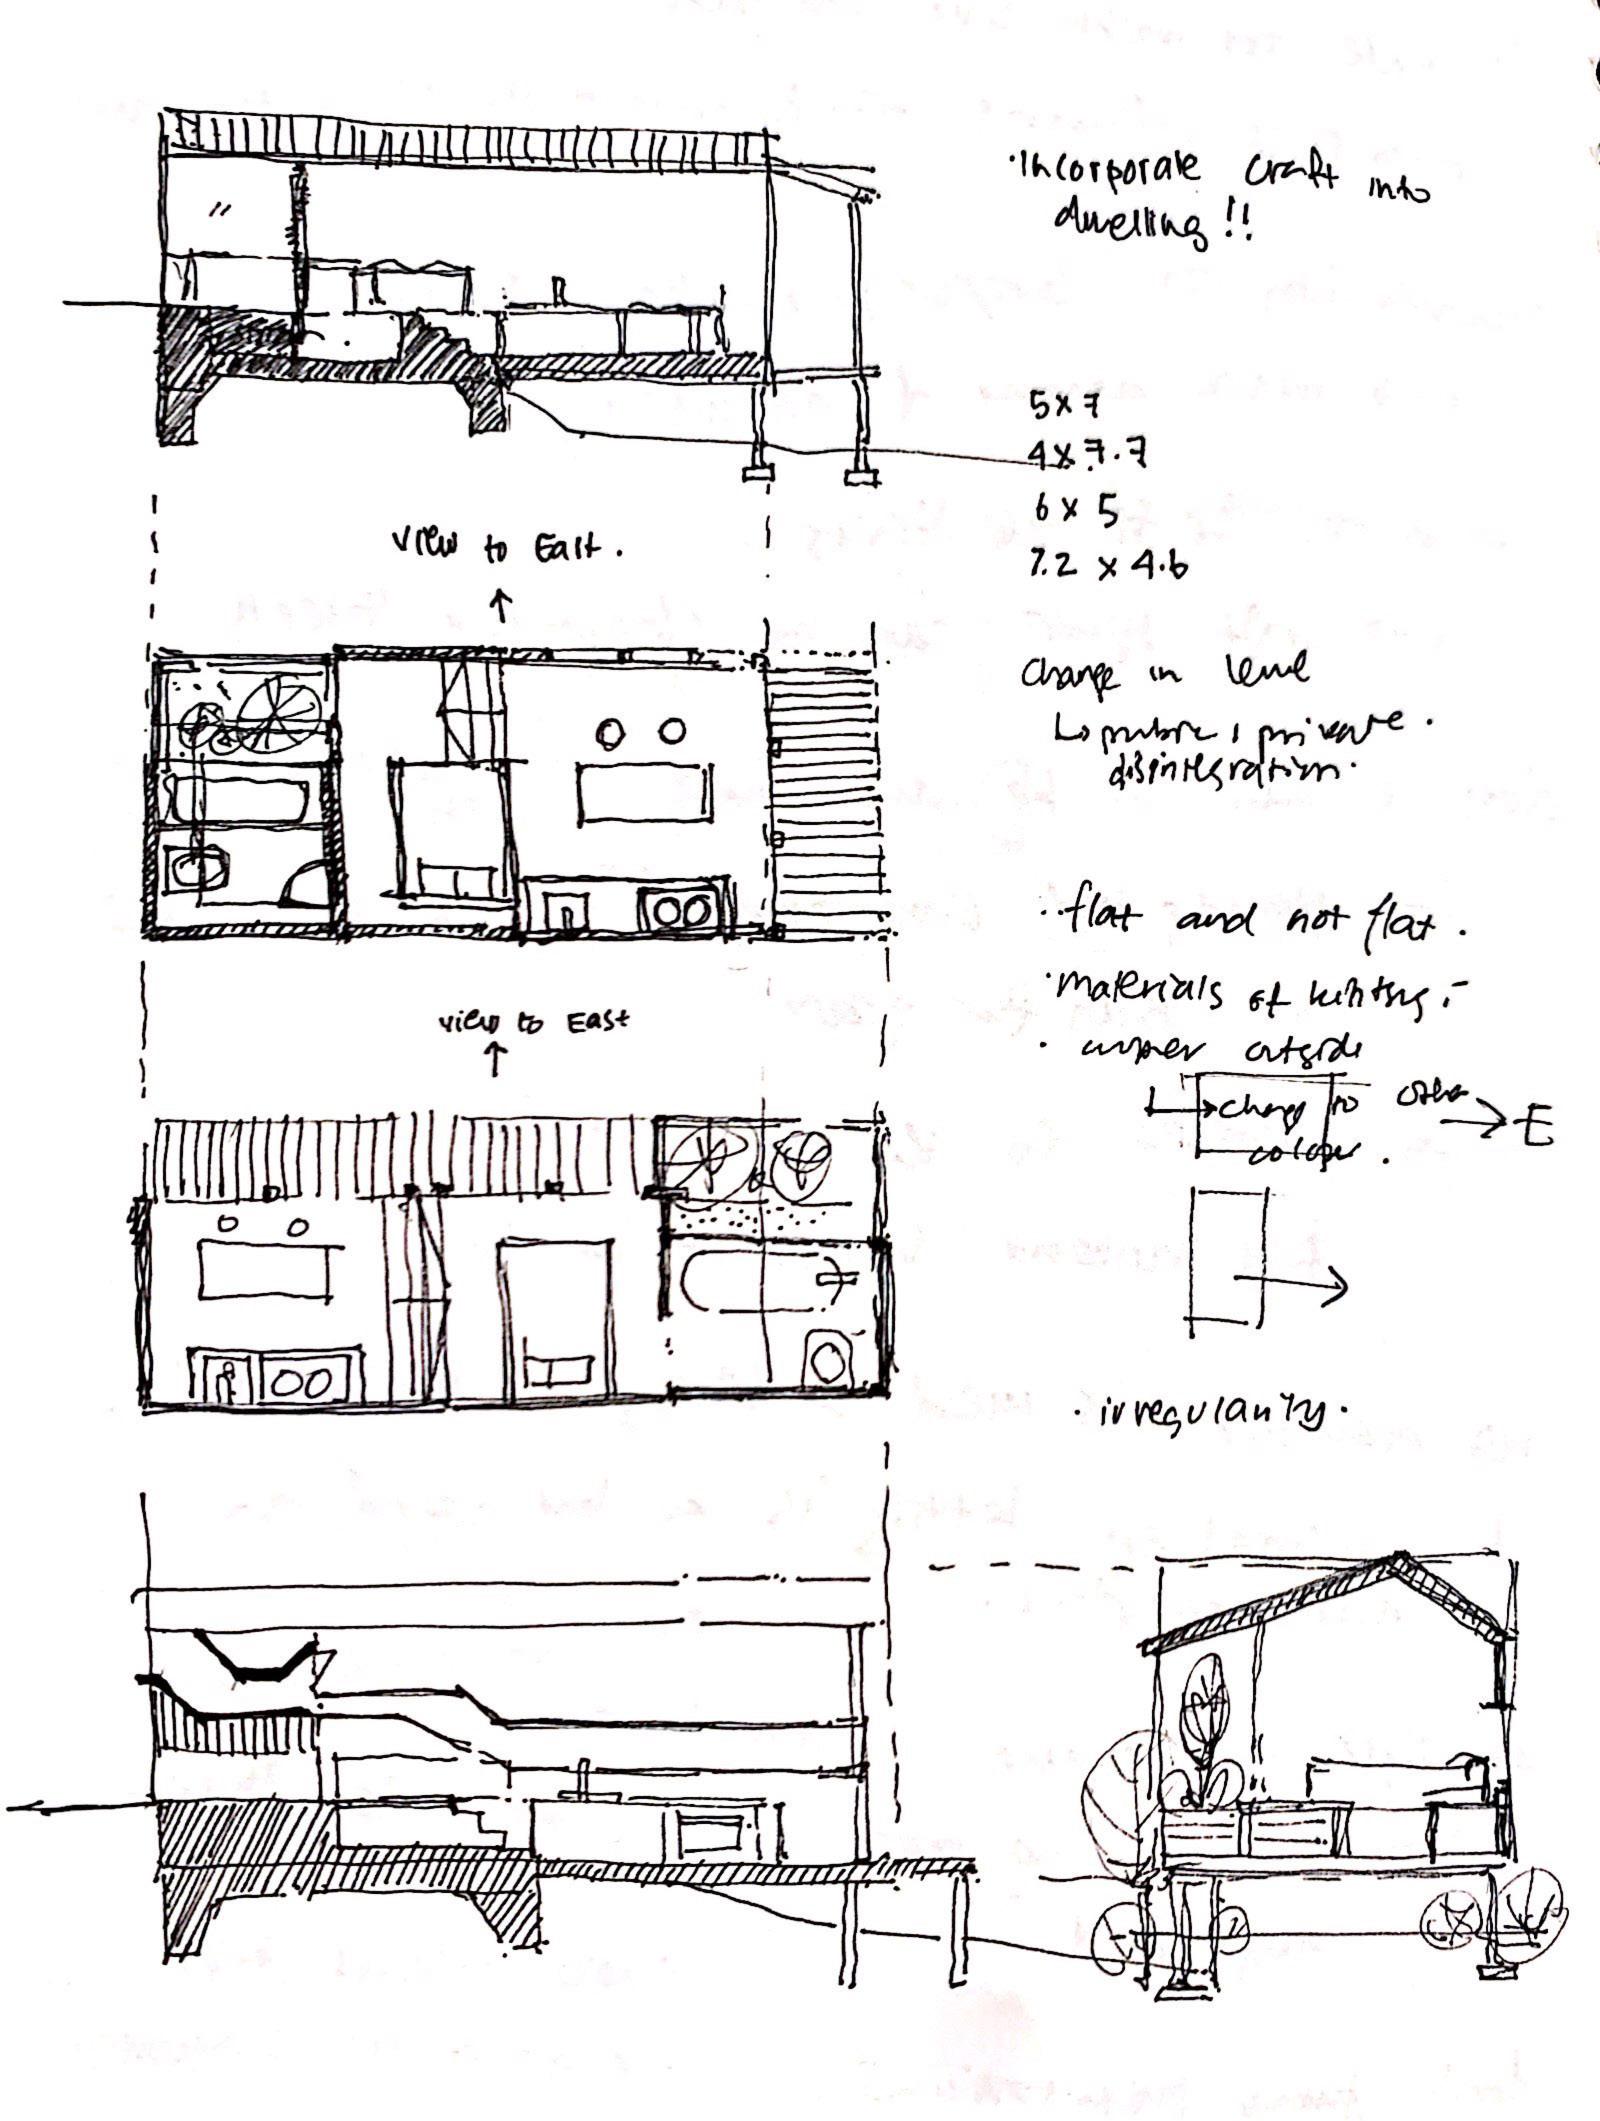 · Incorporate craft into
dwelling!!
5 x 7
4 x 7.7
6 x 5
7.2 x 4.6
view to East.
Change in level
↳ public, private.
disintegration.
·· flat and not flat.
· materials of
view to East
· outside
→ change to other → E
colour.
· irregularity.